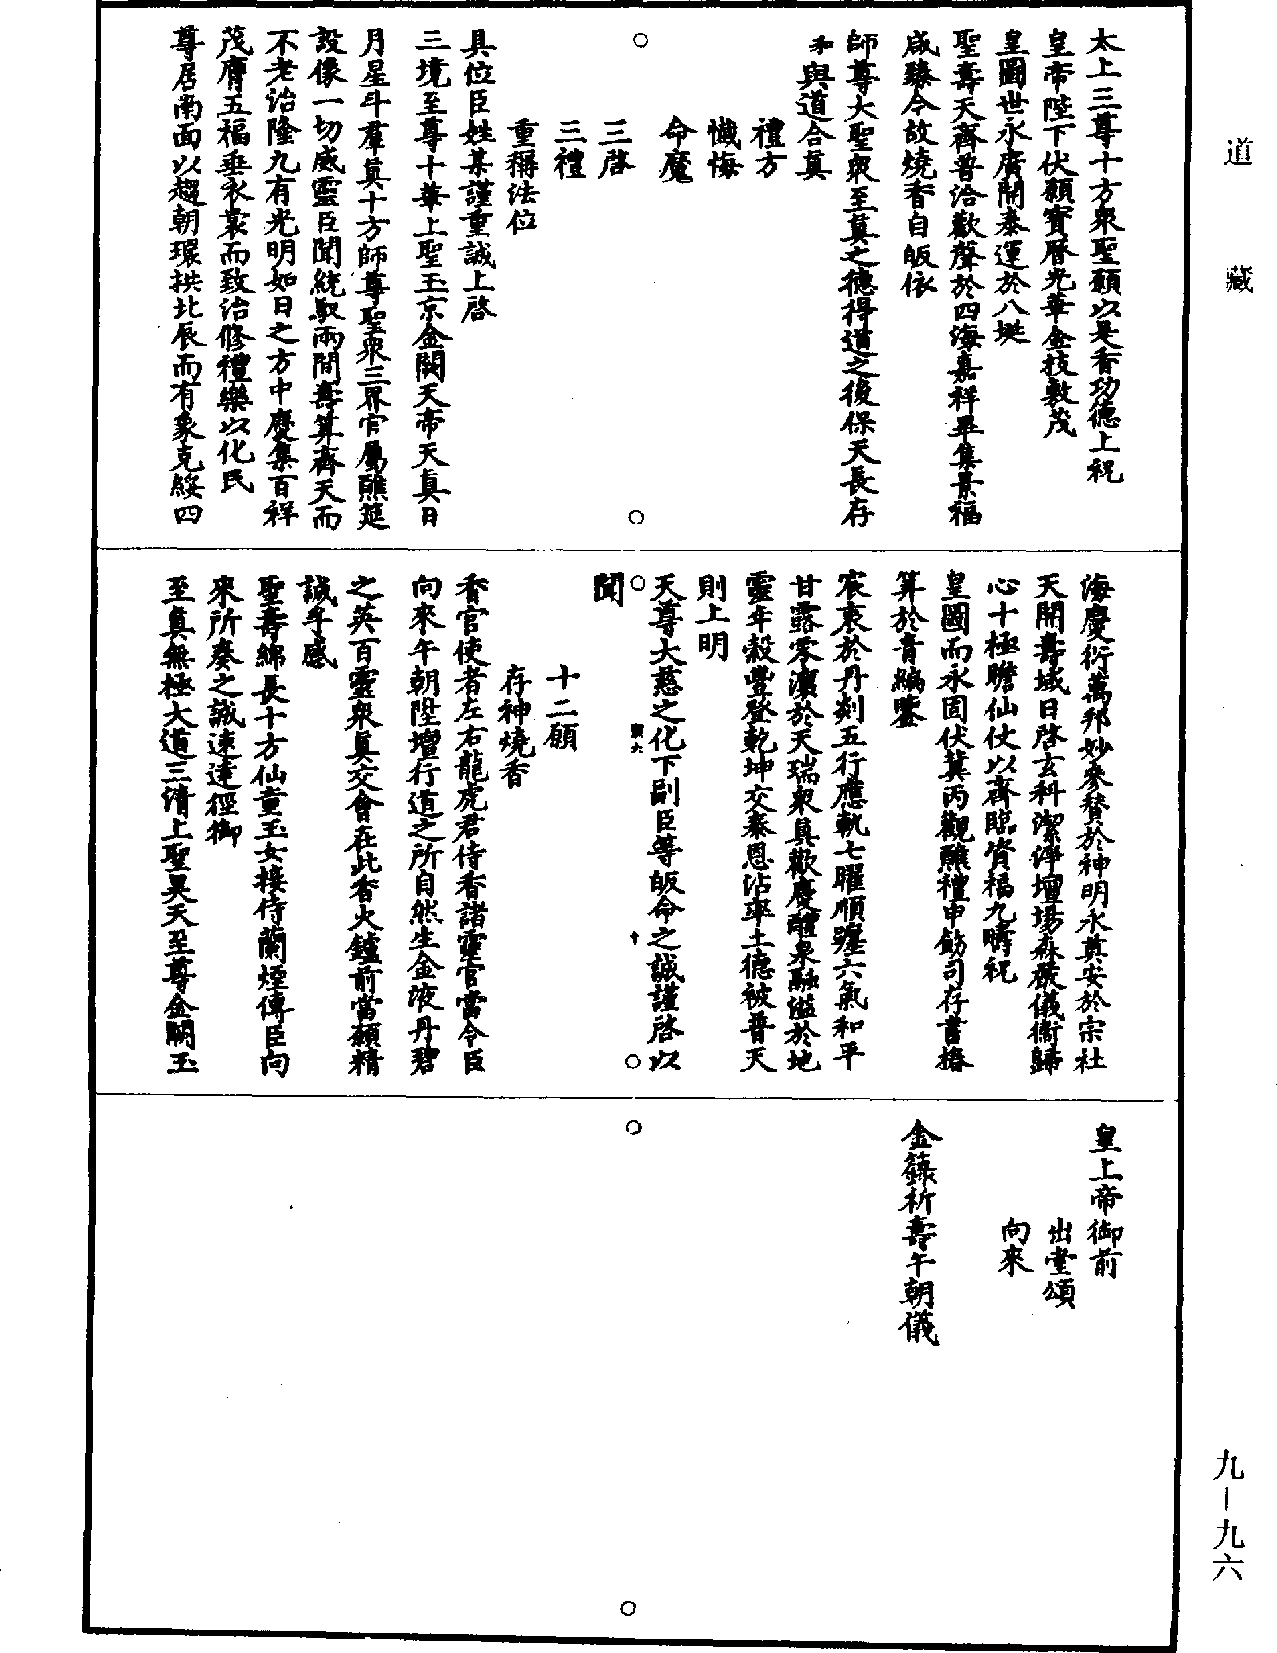 道藏
太上三尊十方衆聖願以是香功德上祝
皇帝陛下伏願寶曆光華金枝敷茂
皇圖世永廣開泰運於八埏
聖壽天齊普洽歡聲於四海嘉祥畢集景福
咸臻令故燒香自皈依
師尊大聖衆至真之德得道之後保天長存
和與道合真
禮方
懺悔
命魔
三啓
三禮
重稱法位
具位臣姓某謹重誠上啓
三境至尊十華上聖玉京金闕天帝天真日
月星斗羣真十方師尊聖衆三界官屬醮筵
設像一切威靈臣聞統馭兩間壽算齊天而
不老治隆九有光明如日之方中慶集百祥
茂膺五福垂衣裳而致治修禮樂以化民
尊居南面以趨朝環拱北辰而有象克綏四
海慶衍萬邦妙參賛於神明永奠安於宗社
天開壽域日啓玄科潔淨壇場森嚴儀衞歸
心十極瞻仙仗以齊臨脗福九疇祝
皇圖而永固伏冀丙觀醮禮申飭司存書換
算於青編鑒
宸衷於丹剡五行應軌七曜順躔六氣和平
甘露零瀼於天瑞衆真歡慶醴泉融溢於地
靈年穀豐登乾坤交泰恩沾率土德被普天
則上明
天尊大慈之化下副臣等皈命之誠謹啓以
聞
十二願
存神燒香
香官使者左右龍虎君侍香諸靈官當令臣
向來午朝陞壇行道之所自然生金液丹碧
之英百靈衆真交會在此香火鑪前當願精
誠孚感
聖壽綿長十方仙童玉女接侍蘭煙傳臣向
來所奏之誠速達徑御
至真無極大道三清上聖昊天至尊金闕玉
皇上帝御前
出堂頌
向來
金籙祈壽午朝儀
九－九六